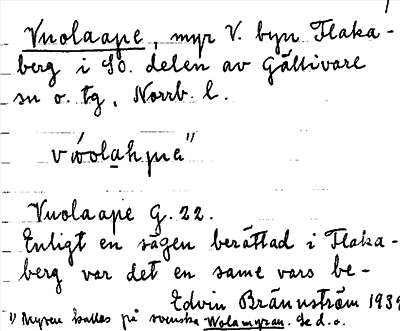 1
Vuolaape, myr V. byn Flaka-
berg i SO. delen av Gällivare
sn o. tg, Norrb. l.
vúolahpɯe 1)
Vuolaape G. 22.
Enligt en sägen berättad i Flaka-
berg var det en same vars be-
Edvin Brännström 1939
1) Myren kallas på svenska Wolamyran. Se d. o.